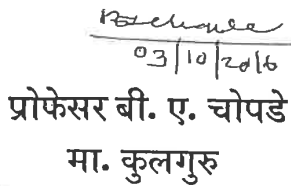 03/10/2016
प्रोफेसर बी. ए. चोपडे
मा. कुलगुरु